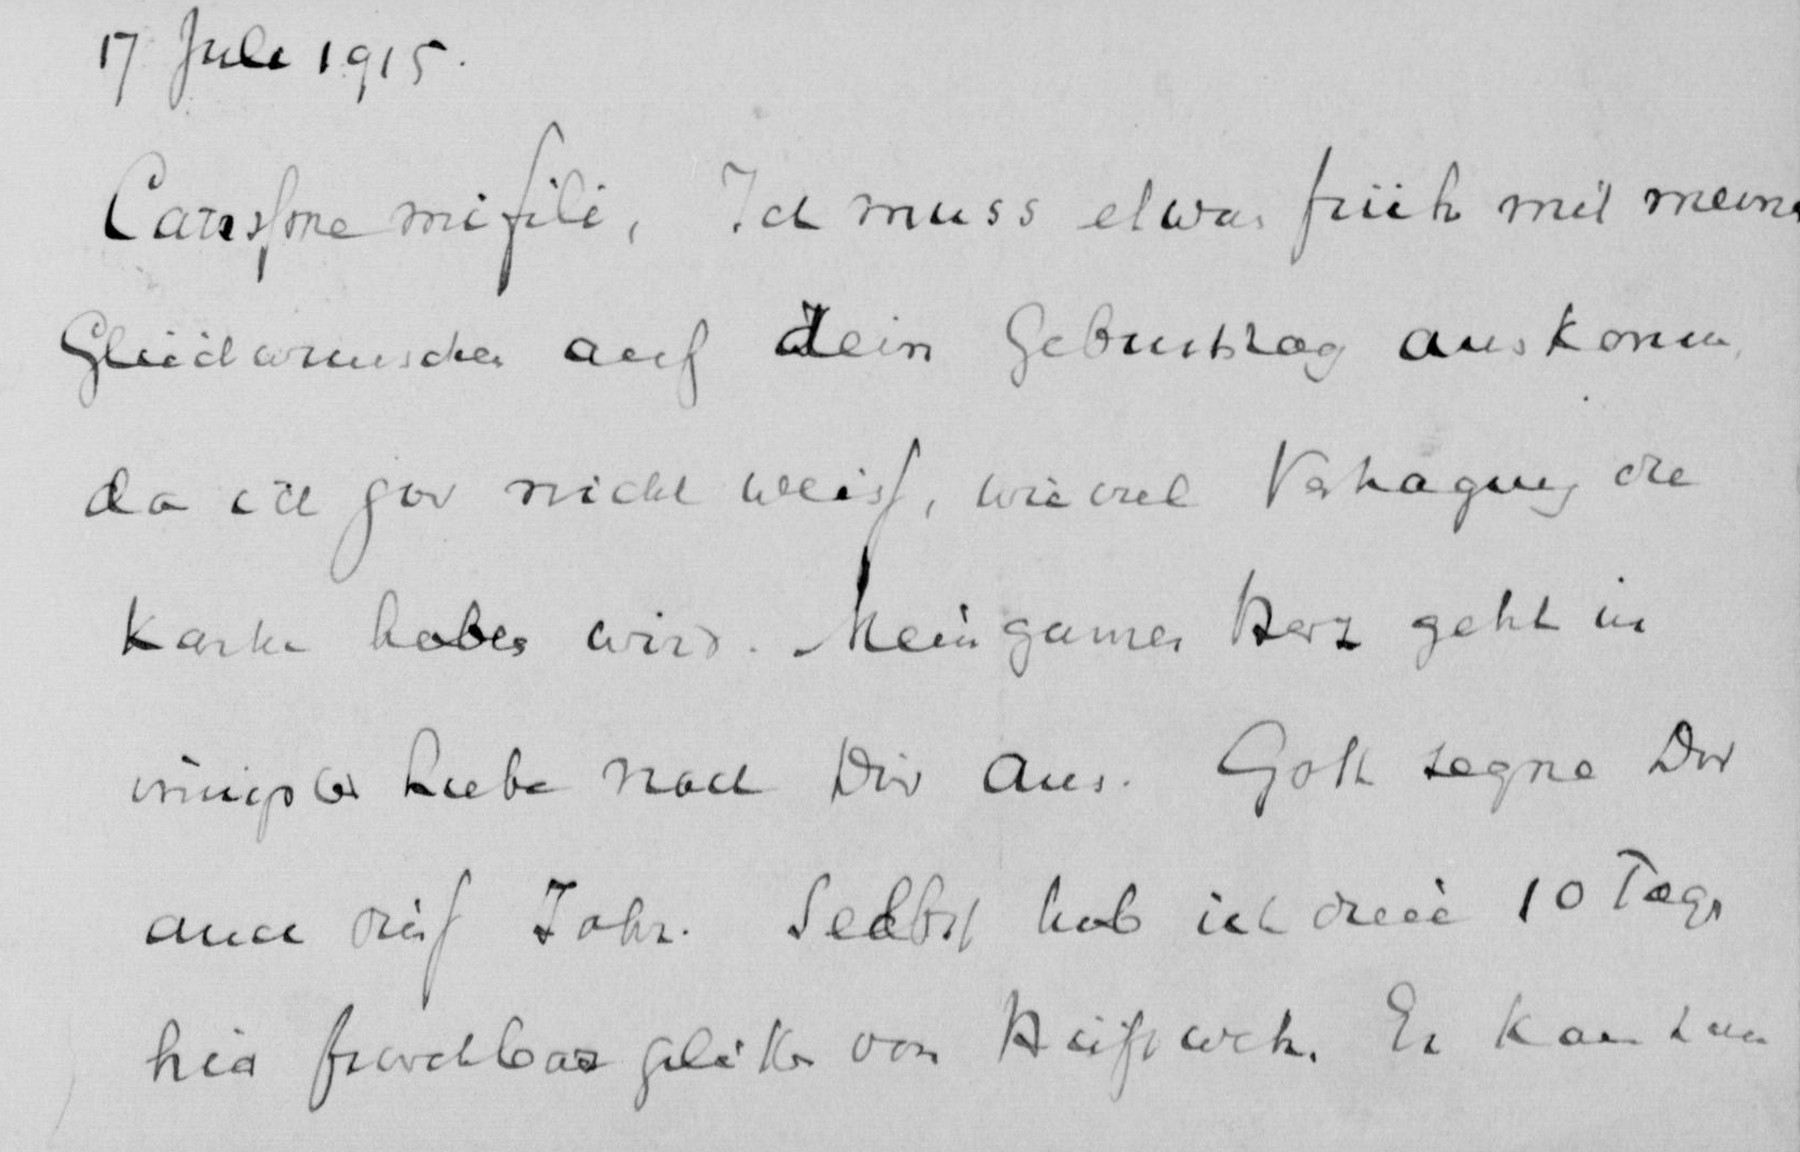 17 Juli 1915.
Carissime mi fili, Ich muss etwas früh mit meinen
Glückwünschen auf Dein Geburtstag auskommen,
da ich gar nicht weiß, wie viel Verzögerung die
Karte haben wird. Mein ganzes Herz geht in
innigster Liebe nach Dir aus. Gott segne Dir
auch dieß Jahr. Selbst hab ich diese 10 Tage
hier furchtbar gelitten von Hüftweh. Es kam